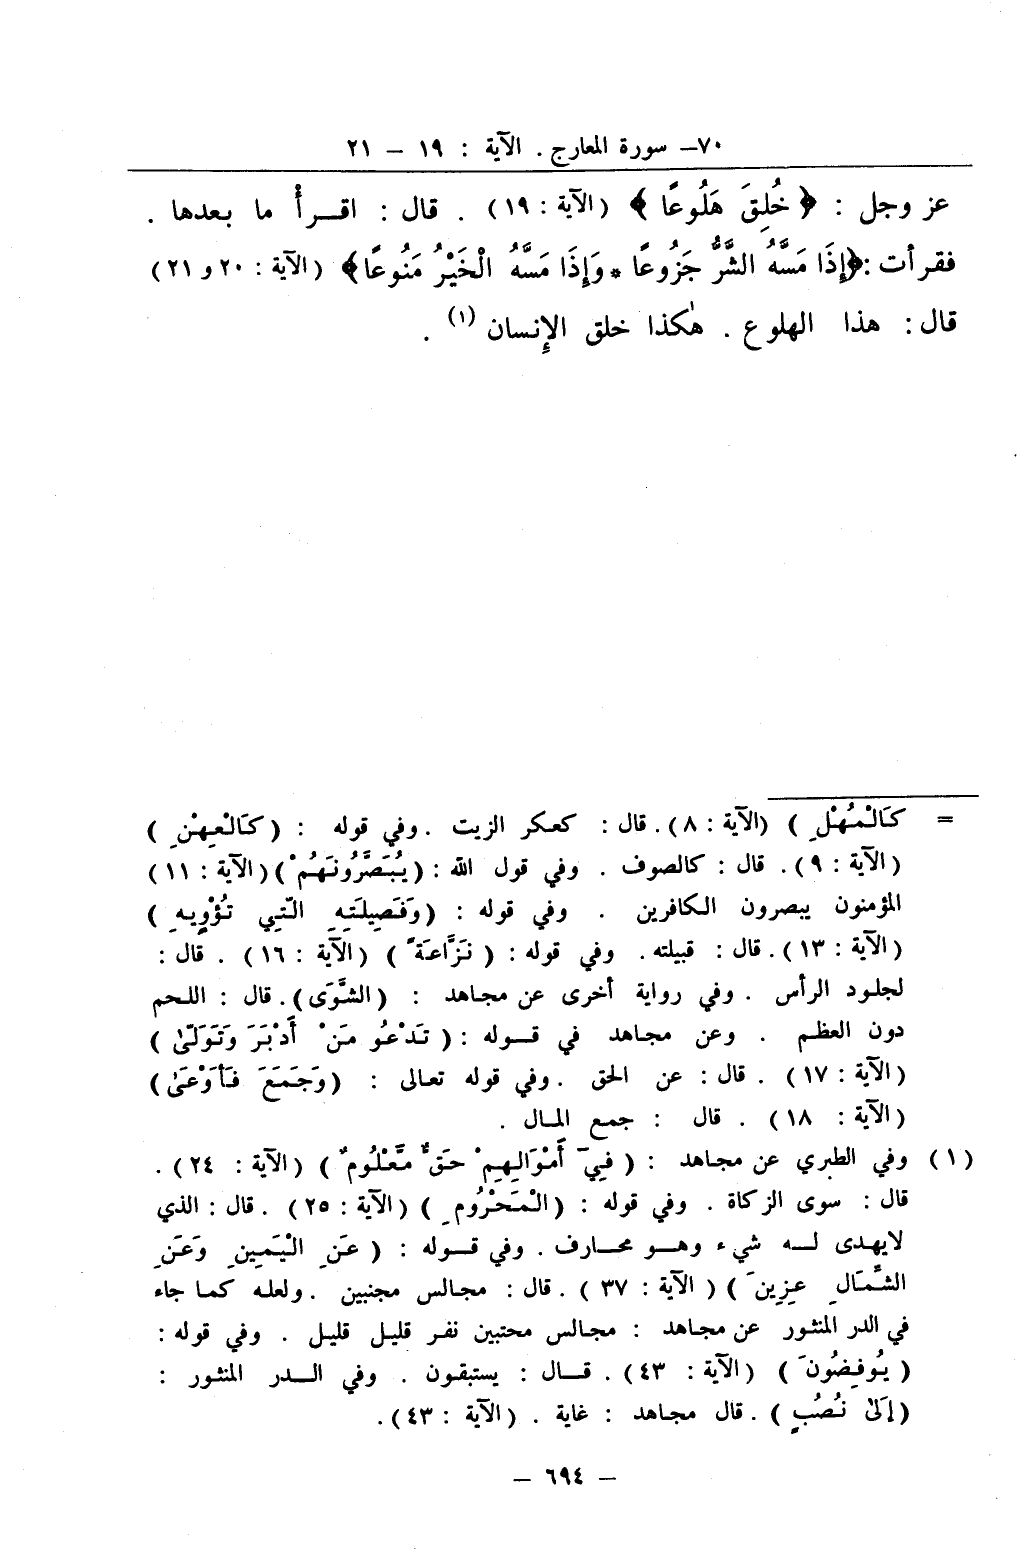 ٧٠– سورة المعارج . الآية : ١٩ – ٢١
عز وجل : ﴿ خُلِقَ هَلُوعًا ﴾ (الآية : ١٩) . قال : اقــرأْ ما بعدها .
فقرأت :﴿إِذَا مَسَّهُ الشَّرُّ جَزُوعًا * وَإِذَا مَسَّهُ الْخَيْرُ مَنُوعًا﴾ (الآية : ٢٠ و ٢١)
قال : هذا الهلوع . هٰكذا خلق الإِنسان (١) .
= كَالْمُهْلِ ) (الآية : ٨). قال : كعكر الزيت .وفي قوله : (كَالْعِهْنِ )
(الآية : ٩). قال : كالصوف . وفي قول الله : (يُبَصَّرُونَهُمْ)(الآية : ١١)
المؤمنون يبصرون الكافرين . وفي قوله : (وَفَصِيلَتِهِ الَّتِي تُؤْوِيهِ )
(الآية : ١٣). قال : قبيلته. وفي قوله : ( نَزَّاعَةً ) (الآية : ١٦) . قال :
لجلود الرأس . وفي رواية أخرى عن مجاهد : (الشَّوَى). قال : اللحم
دون العظم . وعن مجاهد في قــوله : ( تَدْعُو مَنْ أَدْبَرَ وَتَوَلَّىٰ )
(الآية : ١٧) . قال : عن الحق .وفي قوله تعالى : (وَجَمَعَ فَأَوْعَىٰ)
(الآية : ١٨) . قال : جمع المال .
(١) وفي الطبري عن مجاهد : ( فِيٓ أَمْوَالِهِمْ حَقٌّ مَّعْلُومٌ ) (الآية : ٢٤).
قال : سوى الزكاة . وفي قوله : (الْمَحْرُومِ ) (الآية : ٢٥) . قال : الذي
لايهدى لــه شيء وهــو محارف . وفي قــوله : ( عَنِ الْيَمِينِ وَعَنِ
الشِّمَالِ عِزِينَ ) ( الآية : ٣٧ ) . قال : مجالس مجنبين . ولعله كما جاء
في الدر المنثور عن مجاهد : مجالس محتبين نفر قليل قليل . وفي قوله :
( يُوفِضُونَ ) (الآية : ٤٣). قــال : يستبقون . وفي الــدر المنثور :
(إِلَىٰ نُصُبٍ ) . قال مجاهد : غاية . (الآية : ٤٣).
– ٦٩٤ –